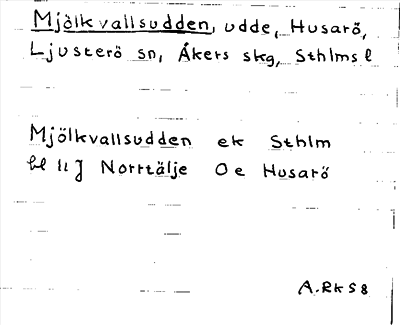 Mjölkvallsudden, udde, Husarö,
Ljusterö sn, Åkers skg, Sthlms l
Mjölkvallsudden ek Sthlm
bl 11 J Norrtälje O e Husarö
A.Rk S8